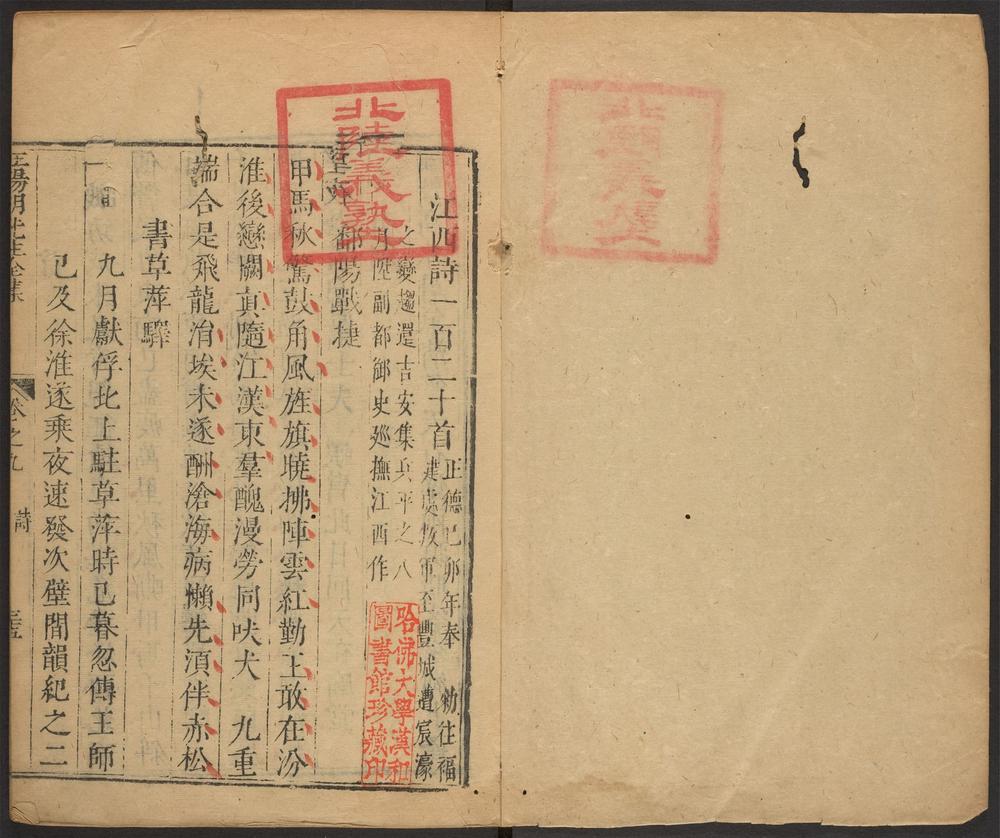 江西詩一百二十首 正德己卯年奉　勅往福
建處叛軍至豐城遭宸濠
之變趨還吉安集兵平之八
月陞副都御史廵撫江西作
鄱陽戰捷
甲馬秋驚鼓角風旌旗曉拂陣雲紅勤王敢在汾
淮後戀闕真隨江漢東羣醜漫勞同吠犬　九重
端合是飛龍涓埃未遂酬滄海病懶先湏伴赤松
書草萍驛
九月獻俘北上駐草萍時已暮忽傳王師
已及徐淮遂乗夜速發次壁間韻紀之二
王陽明先生全集　卷之九　詩
北陸義塾
哈佛大學漢和
圖書館珍藏印